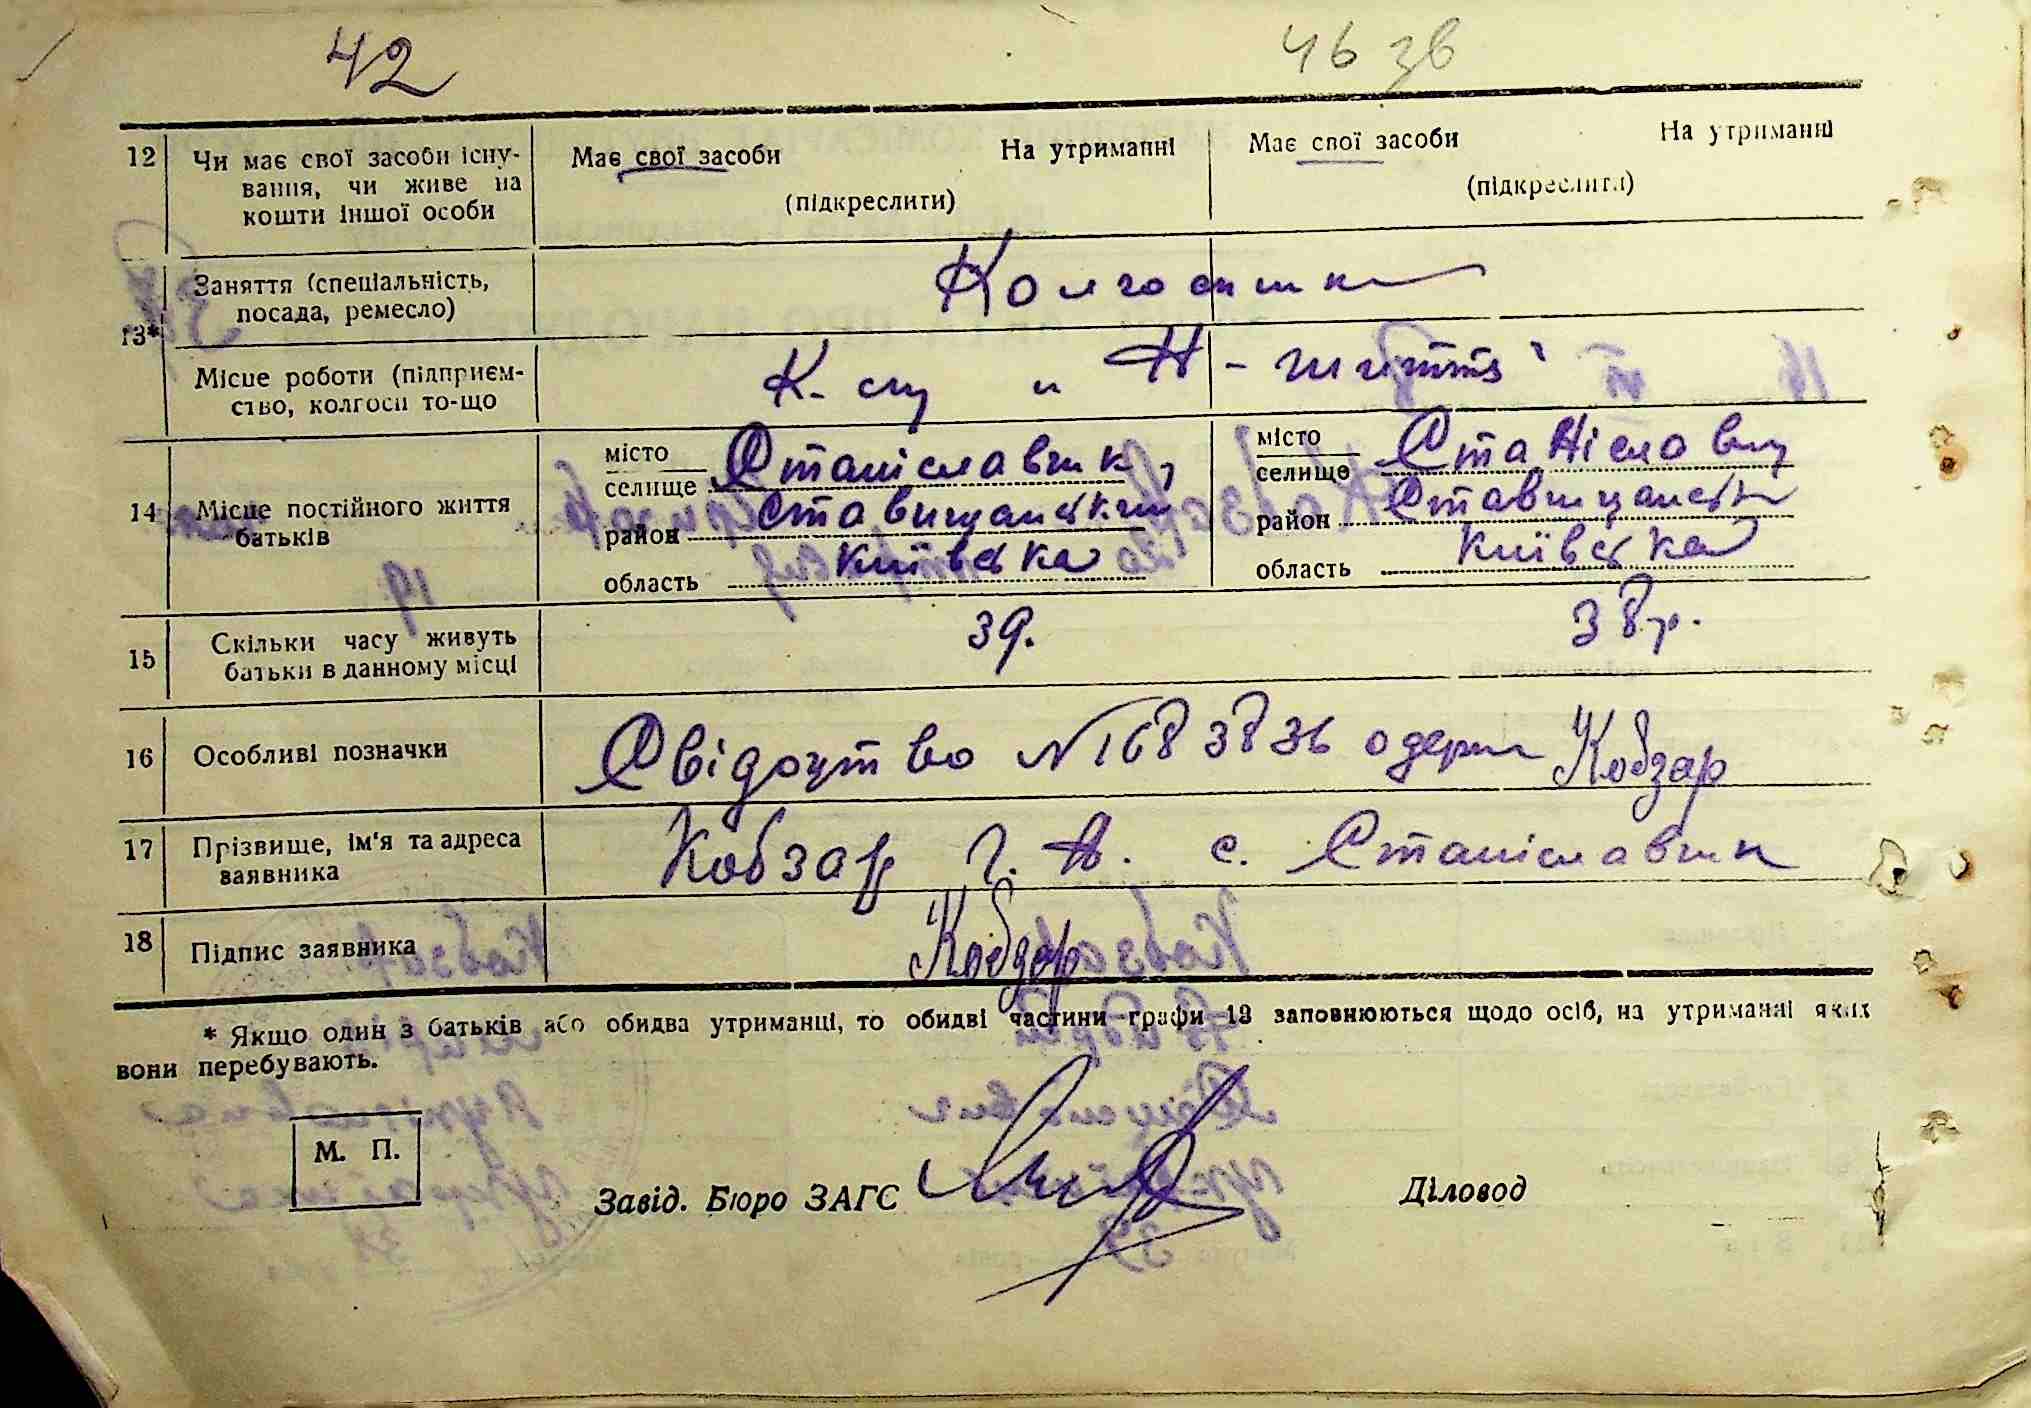 42
46 зв
12 Чи має свої засоби існу-
вання, чи живе на
кошти іншої особи
Має свої засоби На утриманні
(підкреслити)
Має свої засоби На утриманні
(підкреслити)
13*
Заняття (спеціальність,
посада, ремесло)
Колгоспники
Місце роботи (підприєм-
ство, колгосп то-що
К-сп „ Н-життя"
14 Місце постійного життя
батьків
місто
селище Станіславчик
район Ставищанський
область Київська
місто
селище Станіславч
район Ставищанськ
область Київська
15 Скільки часу живуть
батьки в данному місці
39.
38р.
16 Особливі позначки
Свідоцтво № 683836 одерж Кобзар
17 Прізвище, ім'я та адреса
заявника
Кобзар Г. А. с. Станіславчик
18 Підпис заявника
Кобзар
* Якщо один з батьків або обидва утриманці, то обидві частини графи 13 заповнюються щодо осіб, на утриманні яких
вони перебувають.
М. П.
Завід. Бюро ЗАГС
Діловод